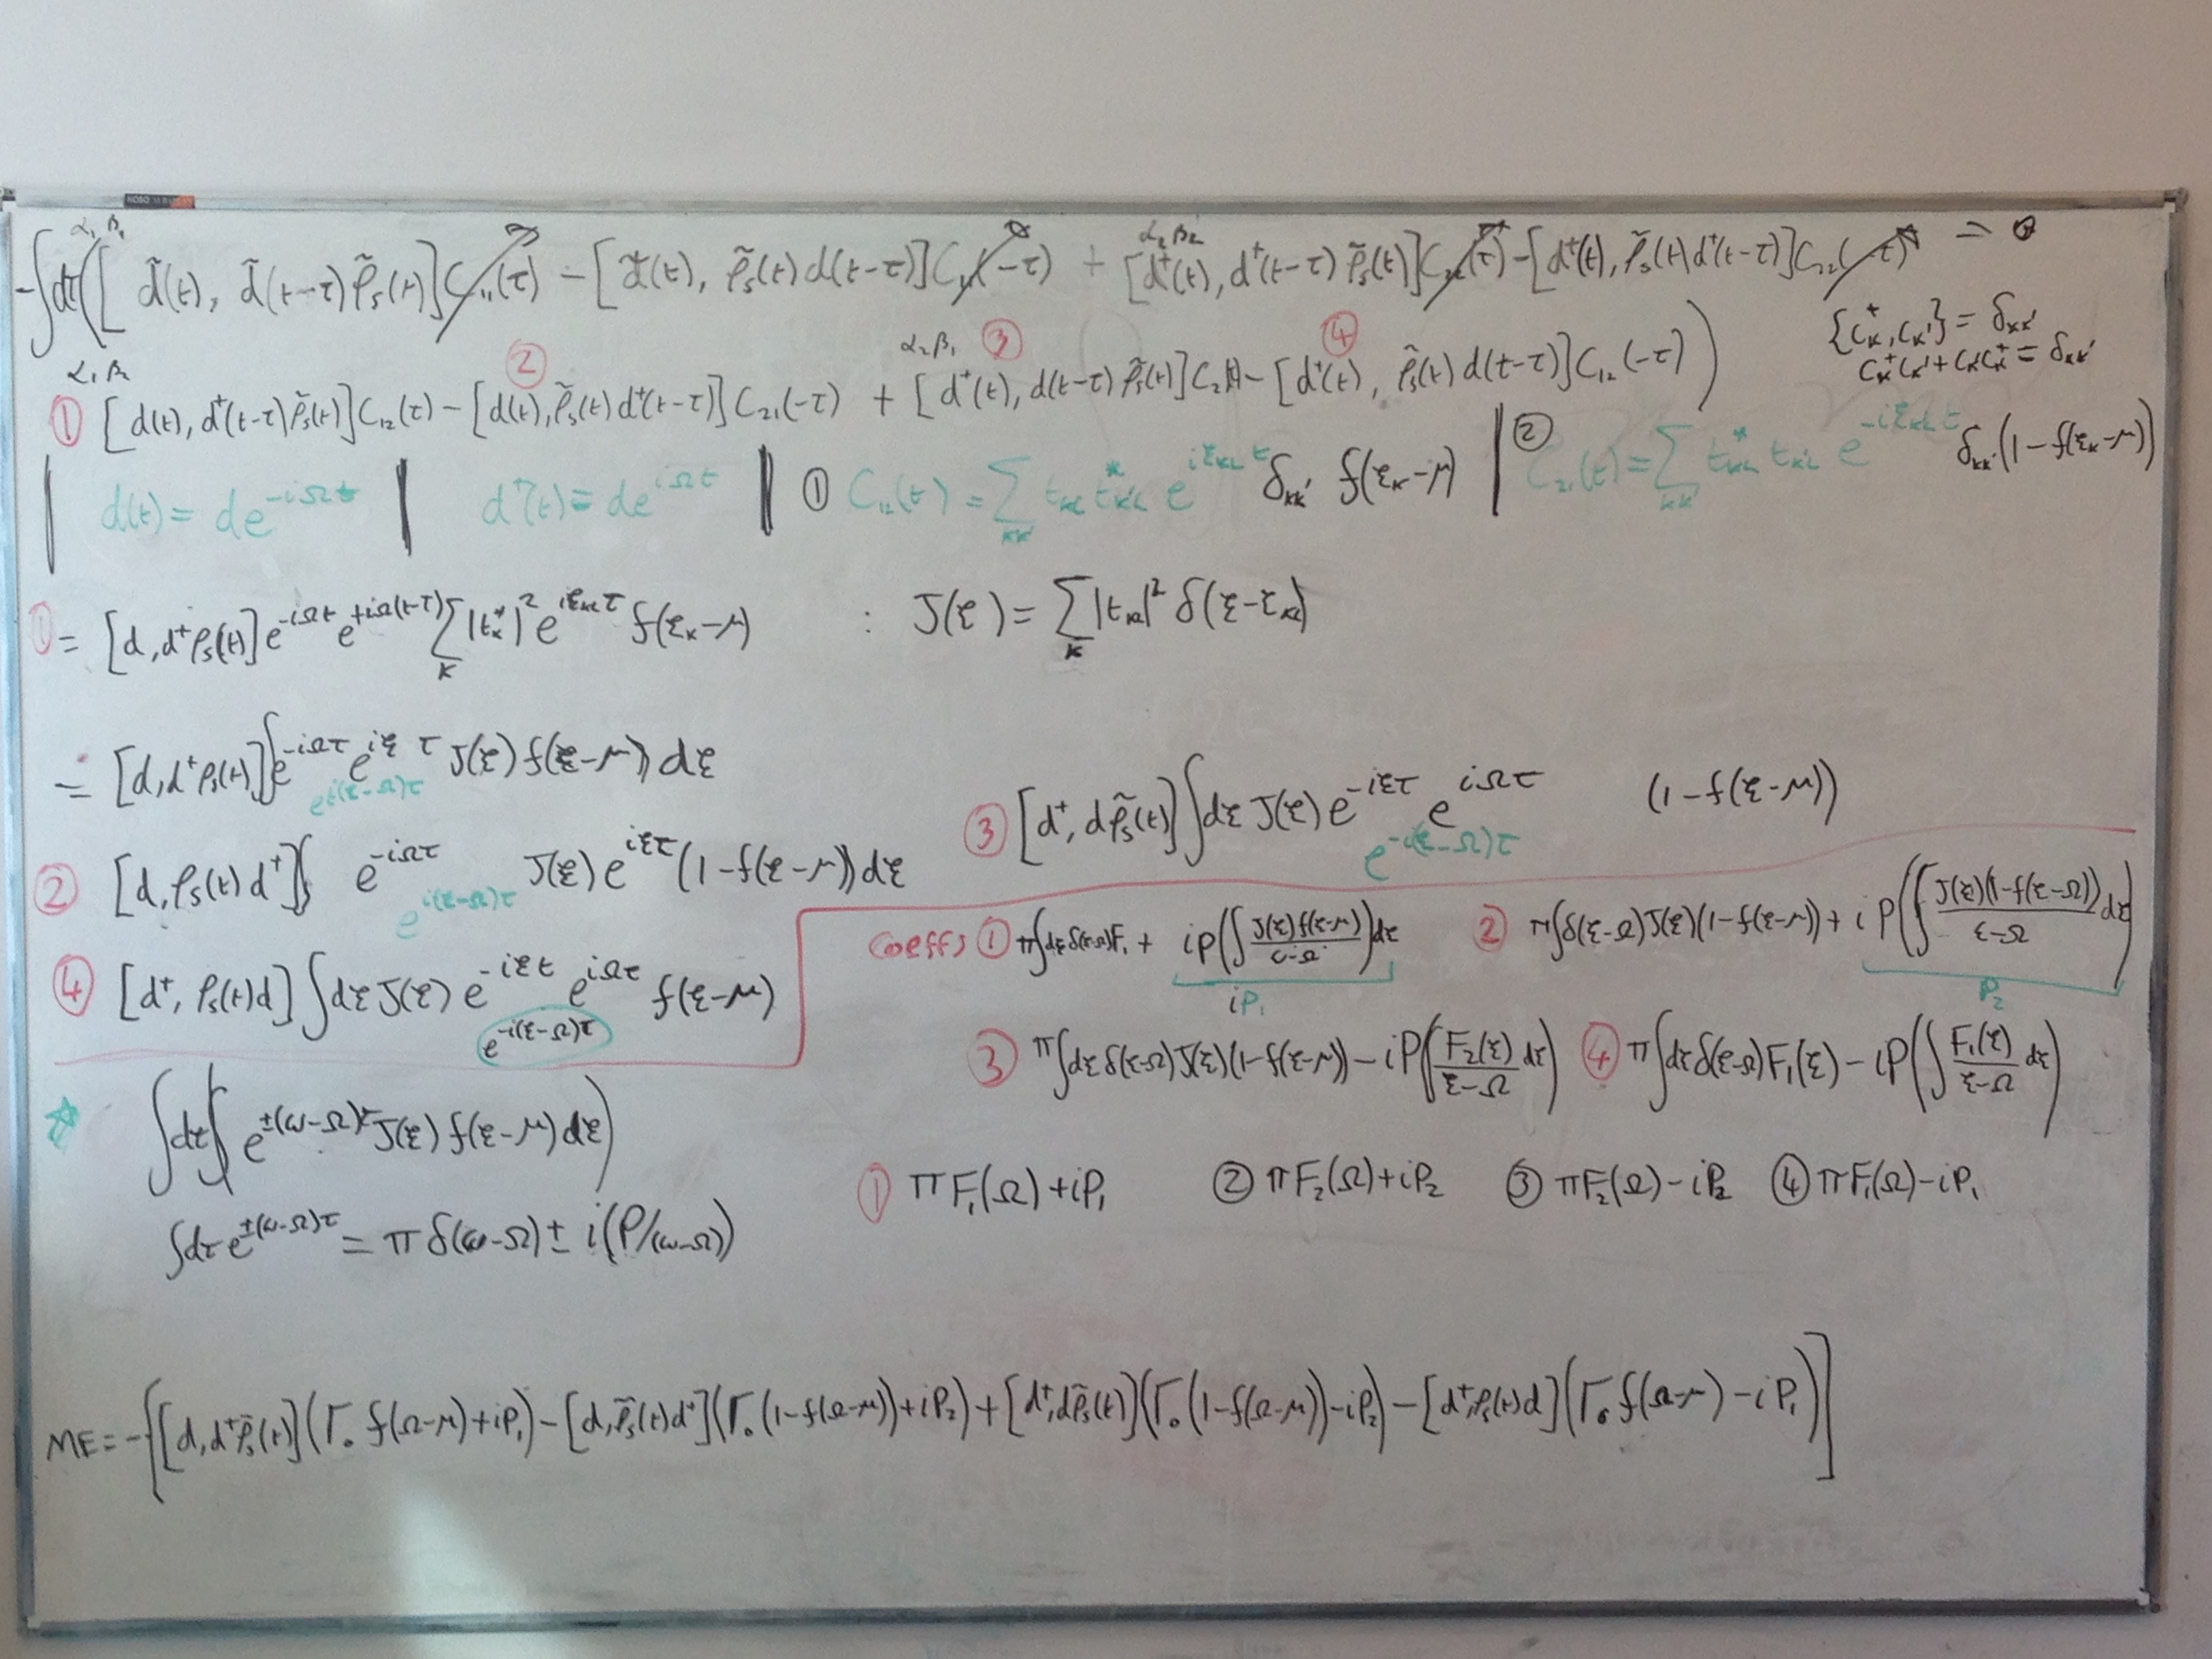 NOBO
α₁ β₁
α₂ β₂
-∫dτ([d̃(t), d̃(t-τ)ρ̃ₛ(t)]C₁₁(τ) - [d̃(t), ρ̃ₛ(t)d(t-τ)]C₁₁(-τ) + [d†(t), d†(t-τ)ρ̃ₛ(t)]C₂₂(τ) - [d†(t), ρ̃ₛ(t)d†(t-τ)]C₂₂(-τ) = 0
{c†ₖ, cₖ'} = δₖₖ'
c†ₖcₖ' + cₖ'c†ₖ = δₖₖ'
α₁ β₂ ② α₂ β₁ ③ ④
① [d(t), d†(t-τ)ρ̃ₛ(t)]C₁₂(τ) - [d(t), ρ̃ₛ(t)d†(t-τ)]C₂₁(-τ) + [d†(t), d(t-τ)ρ̃ₛ(t)]C₂₁(t) - [d†(t), ρ̃ₛ(t)d(t-τ)]C₁₂(-τ))
| d(t) = de^{-iΩt} | d†(t) = de^{iΩt} || ① C₁₂(t) = Σ_{kk'} t_{kL} t*_{k'L} e^{iξ_{kL}t} δ_{kk'} f(ξₖ-μ) | ② C₂₁(t) = Σ_{kk'} t*_{kL} t_{k'L} e^{-iξ_{kL}t} δ_{kk'}(1-f(ξₖ-μ))
① = [d, d†ρₛ(t)]e^{-iΩt}e^{+iΩ(t-τ)}Σₖ|t*ₖ|²e^{iξ_{kL}τ} f(ξₖ-μ) : J(ξ) = Σₖ|t_{kL}|² δ(ξ-ξ_{kL})
= [d, d†ρₛ(t)]∫e^{-iΩτ}e^{iξτ} J(ξ)f(ξ-μ)) dξ
e^{i(ξ-Ω)τ}
③ [d†, dρ̃ₛ(t)]∫dξ J(ξ)e^{-iξτ} e^{iΩτ} (1-f(ξ-μ))
e^{-i(ξ-Ω)τ}
② [d, ρₛ(t)d†]∫ e^{-iΩτ} J(ξ)e^{iξτ}(1-f(ξ-μ))dξ
e^{i(ξ-Ω)τ}
④ [d†, ρₛ(t)d]∫dξJ(ξ)e^{-iξt} e^{iΩτ} f(ξ-μ)
e^{-i(ξ-Ω)τ}
Coeffs ① π∫dξδ(ξ-Ω)F₁ + iP(∫ J(ξ)f(ξ-μ)/(ξ-Ω))dξ ② π∫δ(ξ-Ω)J(ξ)(1-f(ξ-μ)) + iP(∫ J(ξ)(1-f(ξ-Ω))/(ξ-Ω) dξ)
iP₁ P₂
③ π∫dξδ(ξ-Ω)J(ξ)(1-f(ξ-μ)) - iP(∫ F₂(ξ)/(ξ-Ω) dξ) ④ π∫dξδ(ξ-Ω)F₁(ξ) - iP(∫ F₁(ξ)/(ξ-Ω) dξ)
☆ ∫dτ(∫e^{±(ω-Ω)τ}J(ξ)f(ξ-μ)dξ)
∫dτe^{±(ω-Ω)τ} = πδ(ω-Ω) ± i(P/(ω-Ω))
① πF₁(Ω)+iP₁ ② πF₂(Ω)+iP₂ ③ πF₂(Ω)-iP₂ ④ πF₁(Ω)-iP₁
ME = -{[d, d†ρ̃ₛ(t)](Γ₀ f(Ω-μ)+iP₁) - [d, ρ̃ₛ(t)d†](Γ₀(1-f(Ω-μ))+iP₂) + [d†, dρ̃ₛ(t)](Γ₀(1-f(Ω-μ))-iP₂) - [d†, ρₛ(t)d](Γ₀ f(Ω-μ) - iP₁)]